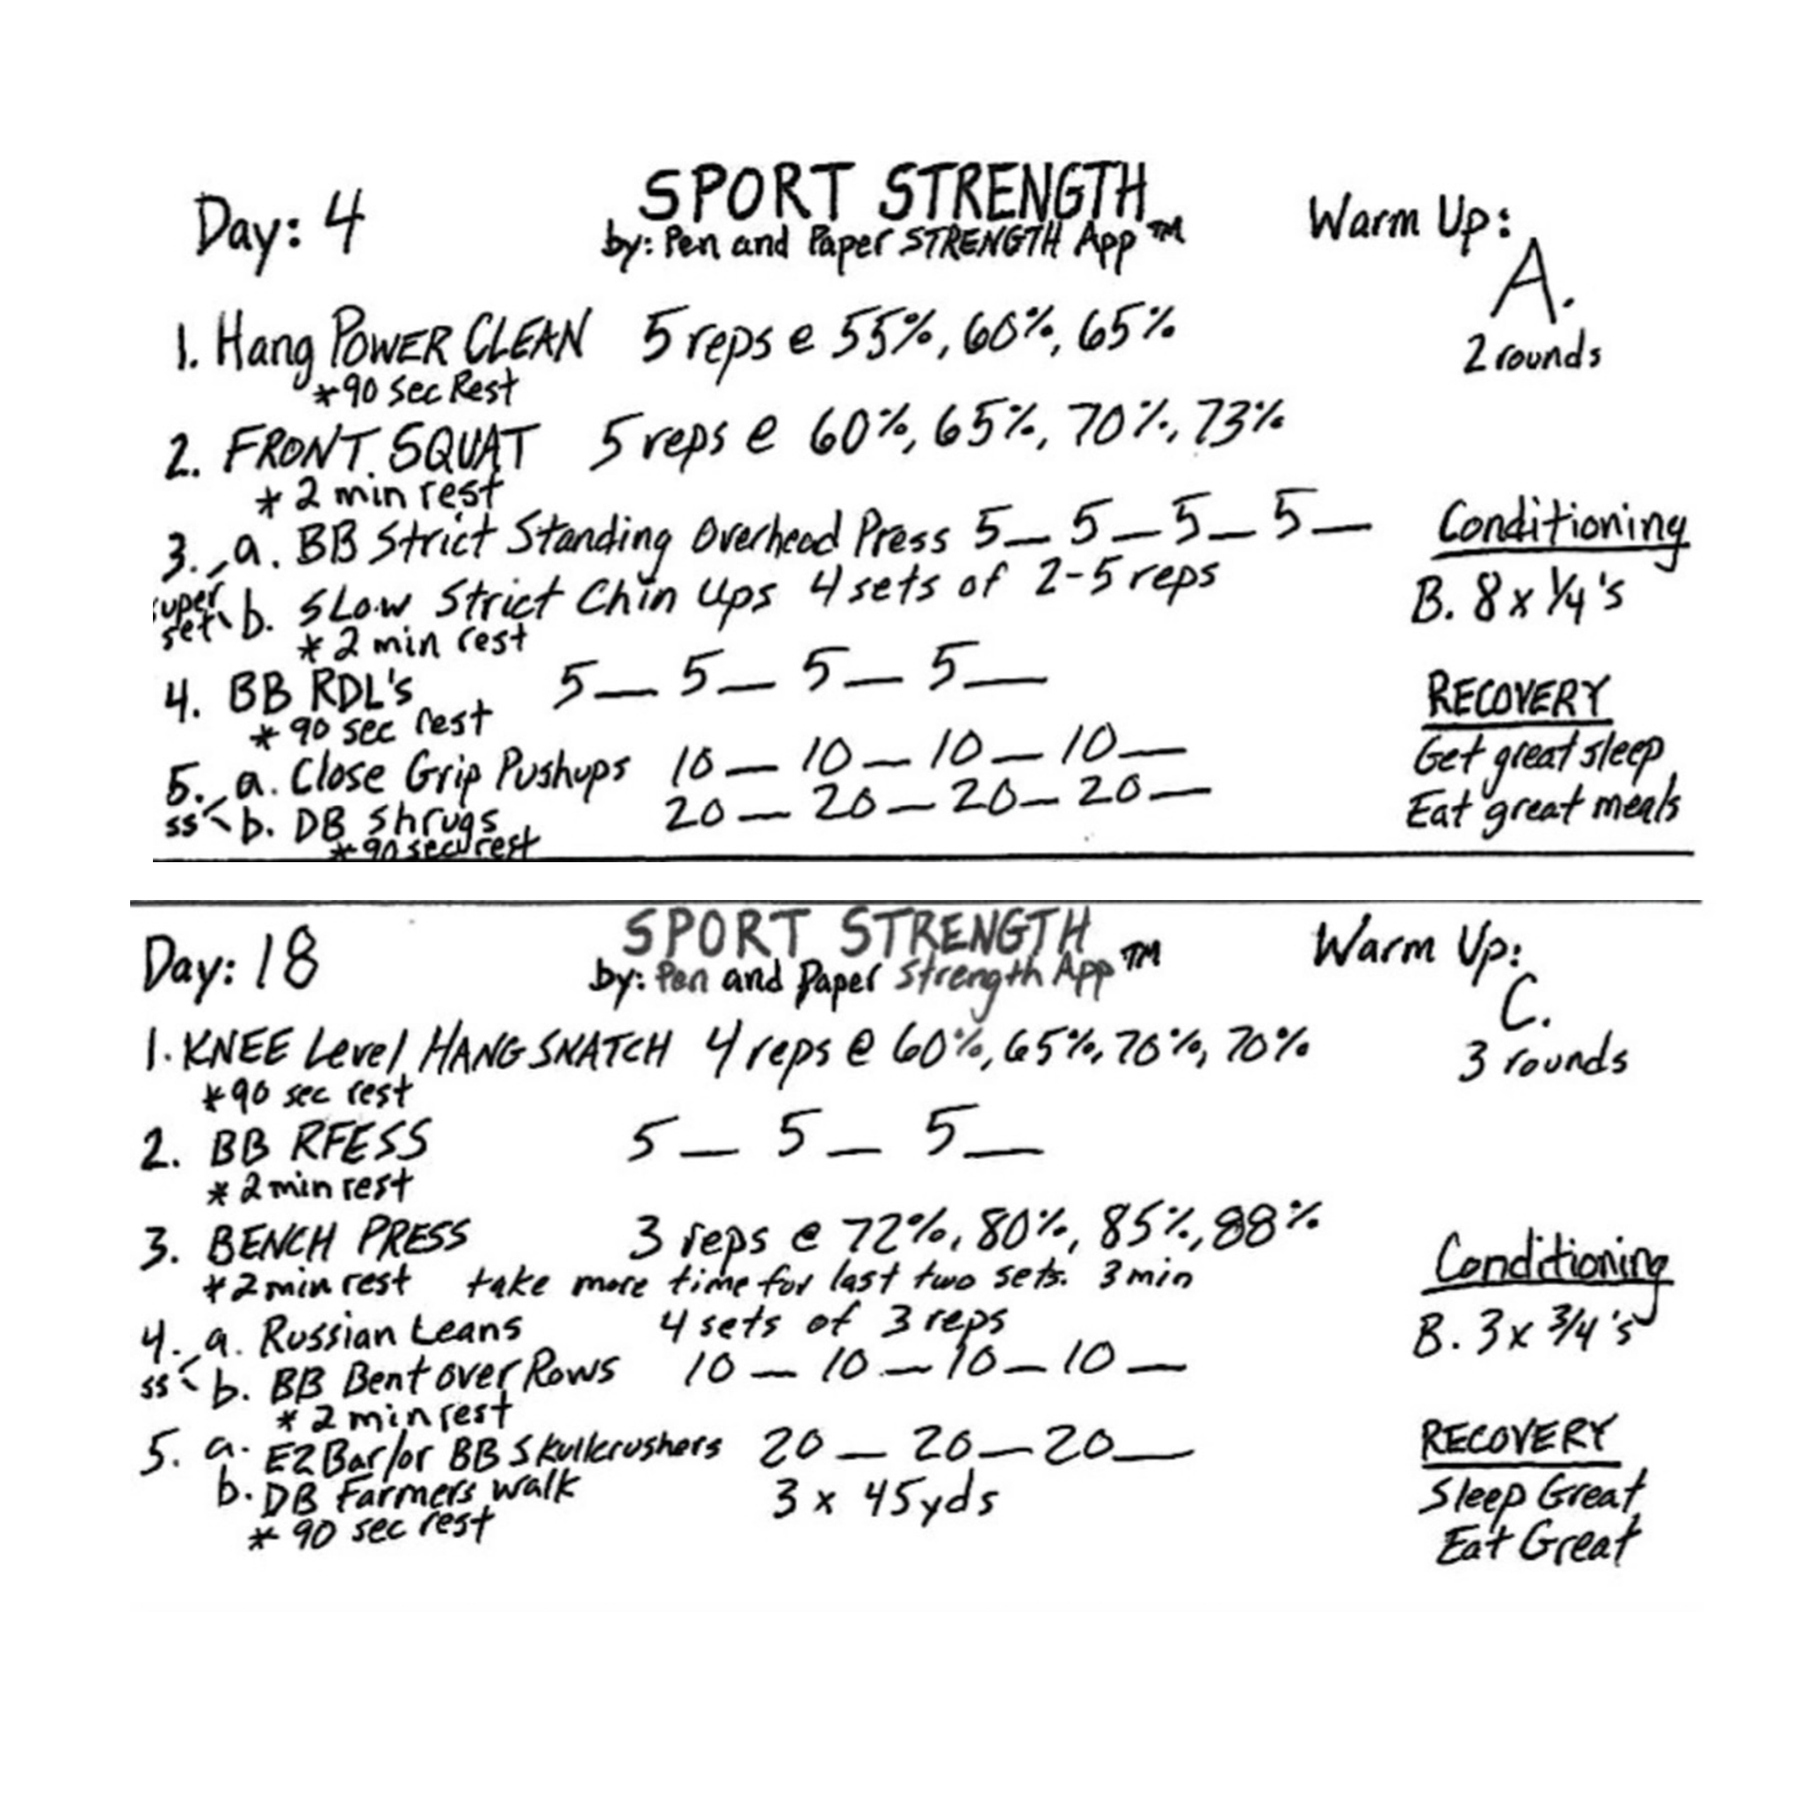 Day: 4
SPORT STRENGTH
by: Pen and Paper STRENGTH App™
Warm Up:
A.
2 rounds
1. Hang POWER CLEAN 5 reps @ 55%, 60%, 65%
*90 Sec Rest
2. FRONT SQUAT 5 reps @ 60%, 65%, 70%, 73%
* 2 min rest
3. a. BB Strict Standing Overhead Press 5_ 5_ 5_ 5_
super set b. SLow Strict Chin Ups 4 sets of 2-5 reps
* 2 min rest
4. BB RDL's 5_ 5_ 5_ 5_
* 90 sec rest
5. a. Close Grip Pushups 10_ 10_ 10_ 10_
ss b. DB Shrugs 20_ 20_ 20_ 20_
*90 sec rest
Conditioning
B. 8 x 1/4's
RECOVERY
Get great sleep
Eat great meals
Day: 18
SPORT STRENGTH
by: Pen and Paper Strength App™
Warm Up:
C.
3 rounds
1. KNEE Level HANG SNATCH 4 reps @ 60%, 65%, 70%, 70%
*90 sec rest
2. BB RFESS 5_ 5_ 5_
* 2 min rest
3. BENCH PRESS 3 reps @ 72%, 80%, 85%, 88%
*2 min rest take more time for last two sets. 3 min
4. a. Russian Leans 4 sets of 3 reps
ss b. BB Bent over Rows 10_ 10_ 10_ 10_
* 2 min rest
5. a. EZ Bar/or BB Skullcrushers 20_ 20_ 20_
b. DB Farmers walk 3 x 45 yds
* 90 sec rest
Conditioning
B. 3 x 3/4's
RECOVERY
Sleep Great
Eat Great